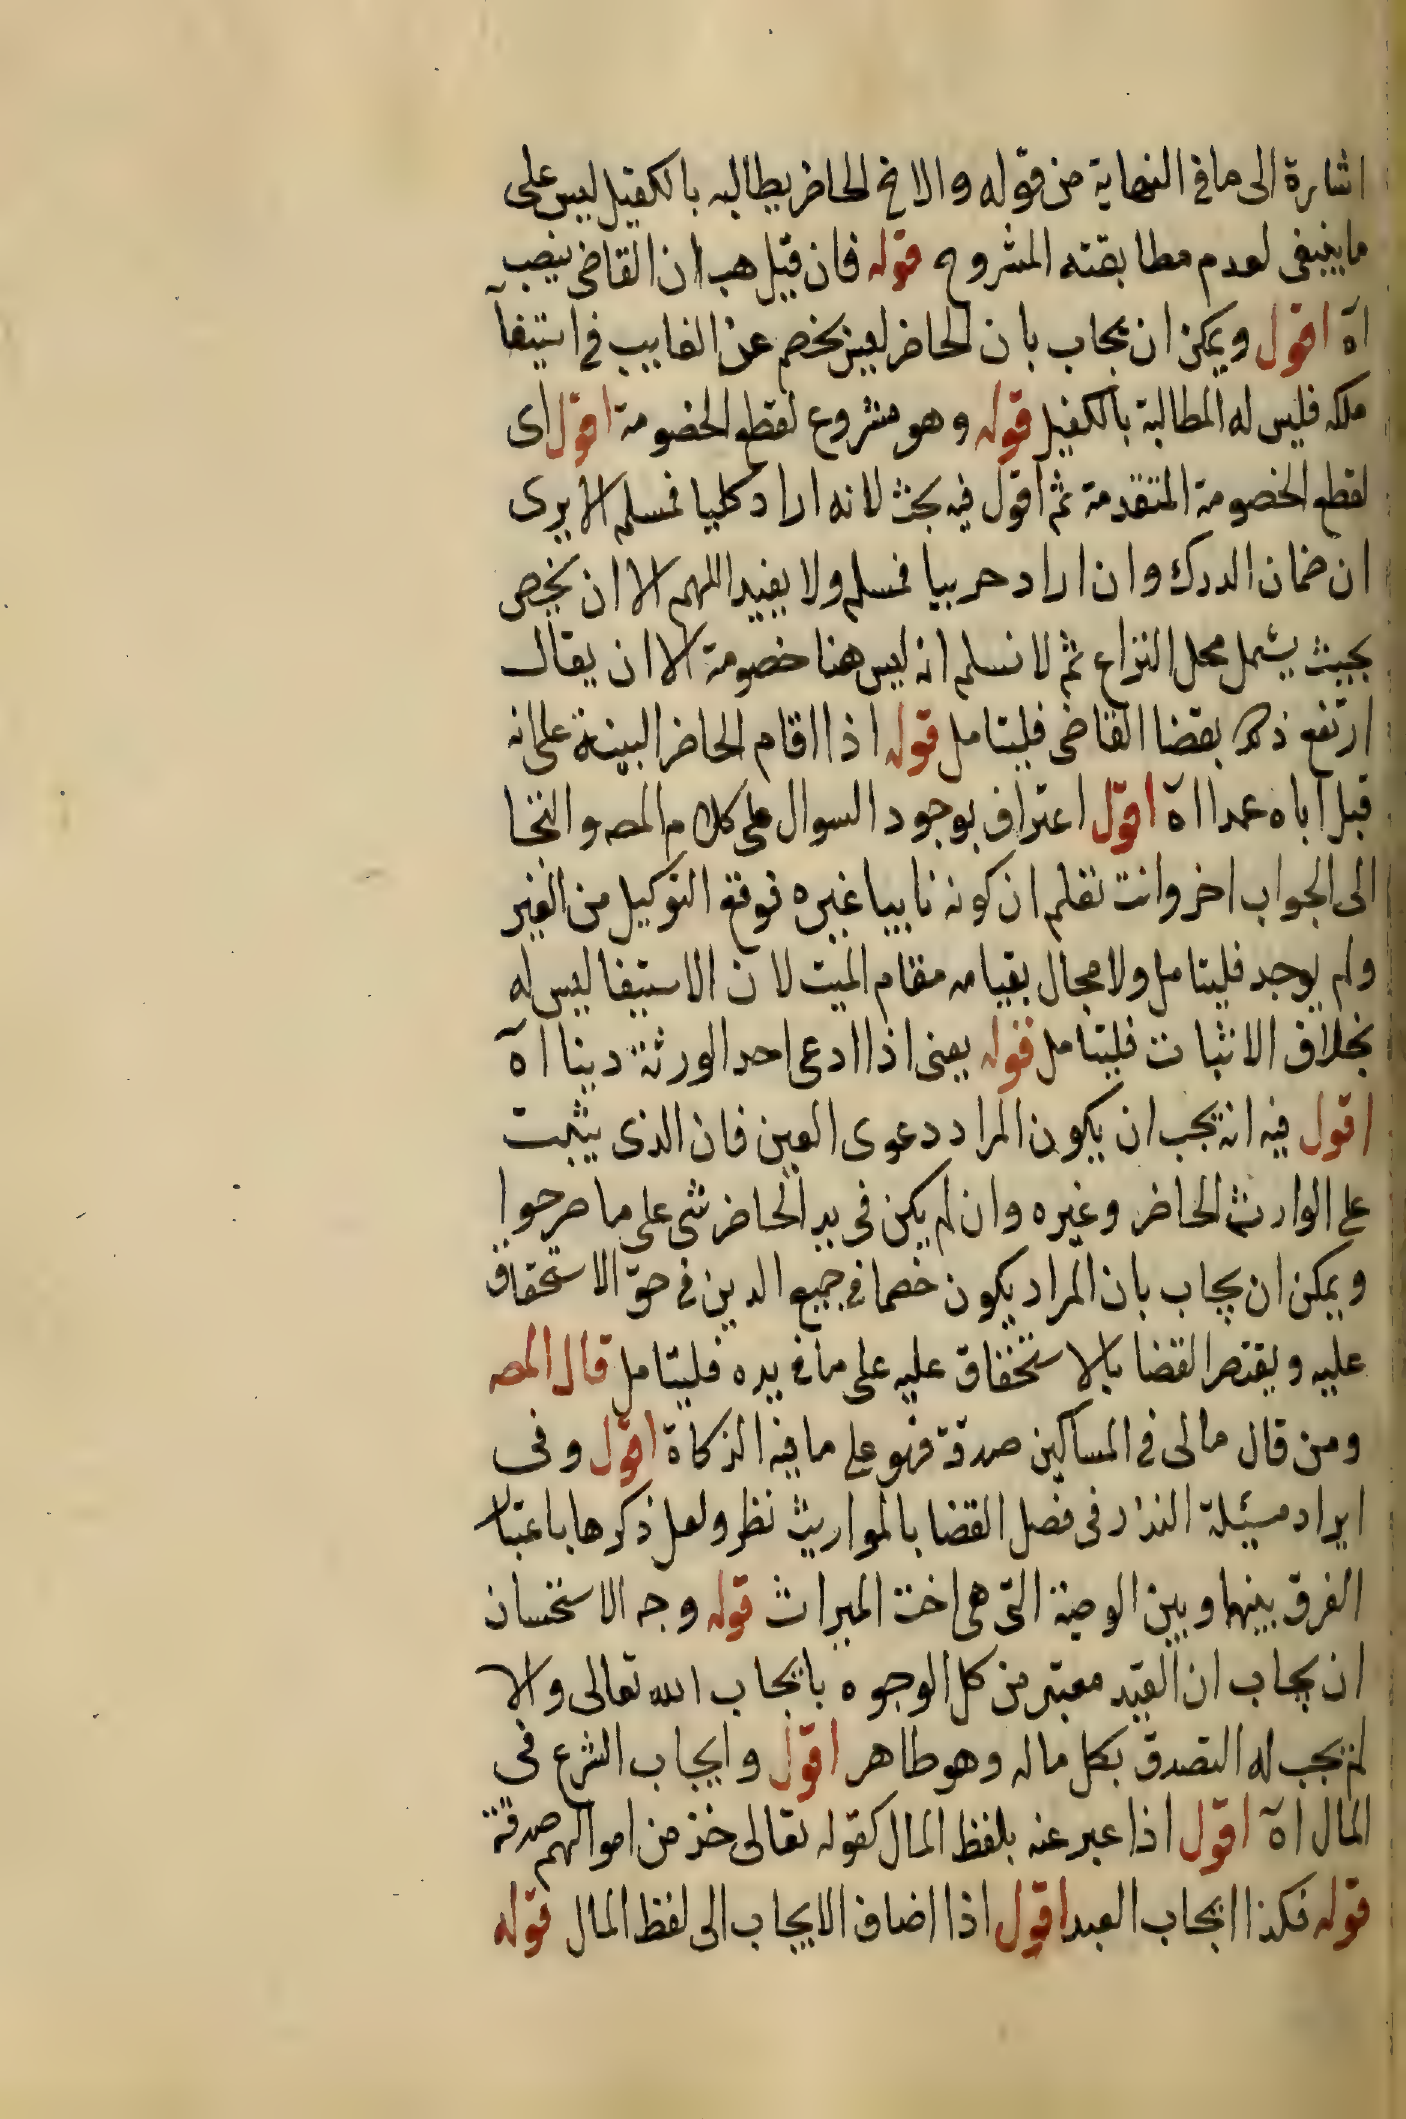 اشارة الى ما فى النهاية من قوله والاخ الحاضر يطالبه بالكفيل ليس على
ما ينبغى لعدم مطابقته المشروح قوله فان قيل هب ان القاضى ينصب
اه اقول ويمكن ان يجاب بان الحاضر ليس بخصم عن الغايب فى استيفآ
ملكه فليس له المطالبة بالكفيل قوله وهو مشروع لقطع الخصومة اقول اى
لقطع الخصومة المتقدمة ثم اقول فيه بحث لانه اراد كليا فمسلم الا يرى
ان ضمان الدرك وان اراد حربيا فمسلم ولا يفيد اللهم الا ان يخص
بحيث يشمل محل النزاع ثم لا نسلم انه ليس هنا خصومة الا ان يقال
ارتفع ذكر بقضا القاضى فليتامل قوله اذا اقام الحاضر البينة على انه
قبل اباه عمدا اه اقول اعتراف بوجود السوال على كلام المصه والتخا
الى الجواب اخر وانت تعلم ان كونه نايبا غيره توقع التوكيل من الغير
ولم يوجد فليتامل ولا مجال بقيامه مقام الميت لان الاستيفا ليس له
بخلاف الاثبات فليتامل قوله يعنى اذا ادعى احد الورثة دينا اه
اقول فيه انه يجب ان يكون المراد دعوى العين فان الذى يثبت
على الوارث الحاضر وغيره وان لم يكن فى يد الحاضر شى على ما صرحوا
ويمكن ان يجاب بان المراد يكون خصما فى جميع الدين فى حق الاستحقاق
عليه ويقتصر القضا بالاستحقاق عليه على ما فى يده فليتامل قال المصه
ومن قال مالى فى المساكين صدقة فهو على ما فيه الزكاة اقول وفى
ايراد مسئلة النذر فى فصل القضا بالمواريث نظر ولعل ذكرها باعتبار
الفرق بينها وبين الوصية التى هى اخت الميراث قوله وجه الاستحسان
ان يجاب ان القيد معتبر من كل الوجوه بايجاب الله تعالى والا
لم يجب له التصدق بكل ماله وهو طاهر اقول وايجاب الشرع فى
المال اه اقول اذا عبر عنه بلفظ المال كقوله تعالى خذ من اموالهم صدقة
قوله فكذا ايجاب العبد اقول اذا اضاف الايجاب الى لفظ المال قوله